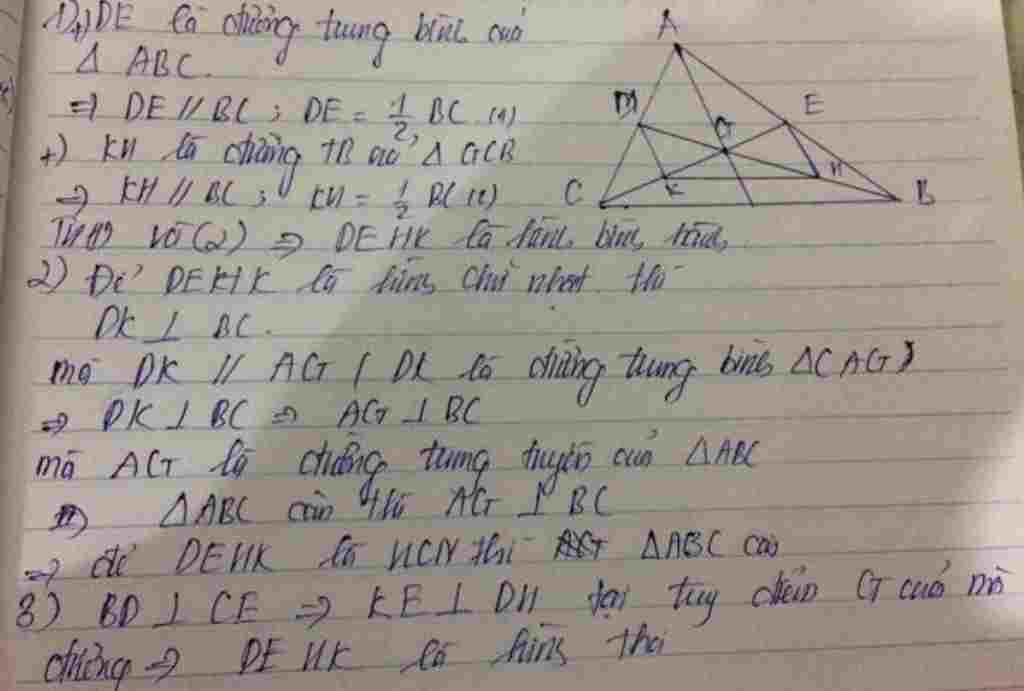 1) +) DE là đường trung bình của
Δ ABC.
=> DE // BC ; DE = 1/2 BC (1)
+) KH là đường TB của Δ GCB
=> KH // BC ; KH = 1/2 BC (2)
Từ (1) và (2) => DEHK là hình bình hành
2) Để DEHK là hình chữ nhật thì
DK ⊥ BC.
mà DK // AG ( DK là đường trung bình ΔCAG )
=> DK ⊥ BC => AG ⊥ BC
mà AG là đường trung tuyến của ΔABC
=> ΔABC cân thì AG ⊥ BC
=> để DEHK là HCN thì ΔABC cân
3) BD ⊥ CE => KE ⊥ DH tại trung điểm G của mỗi
đường => DEHK là hình thoi
A
D
E
G
K
H
C
B